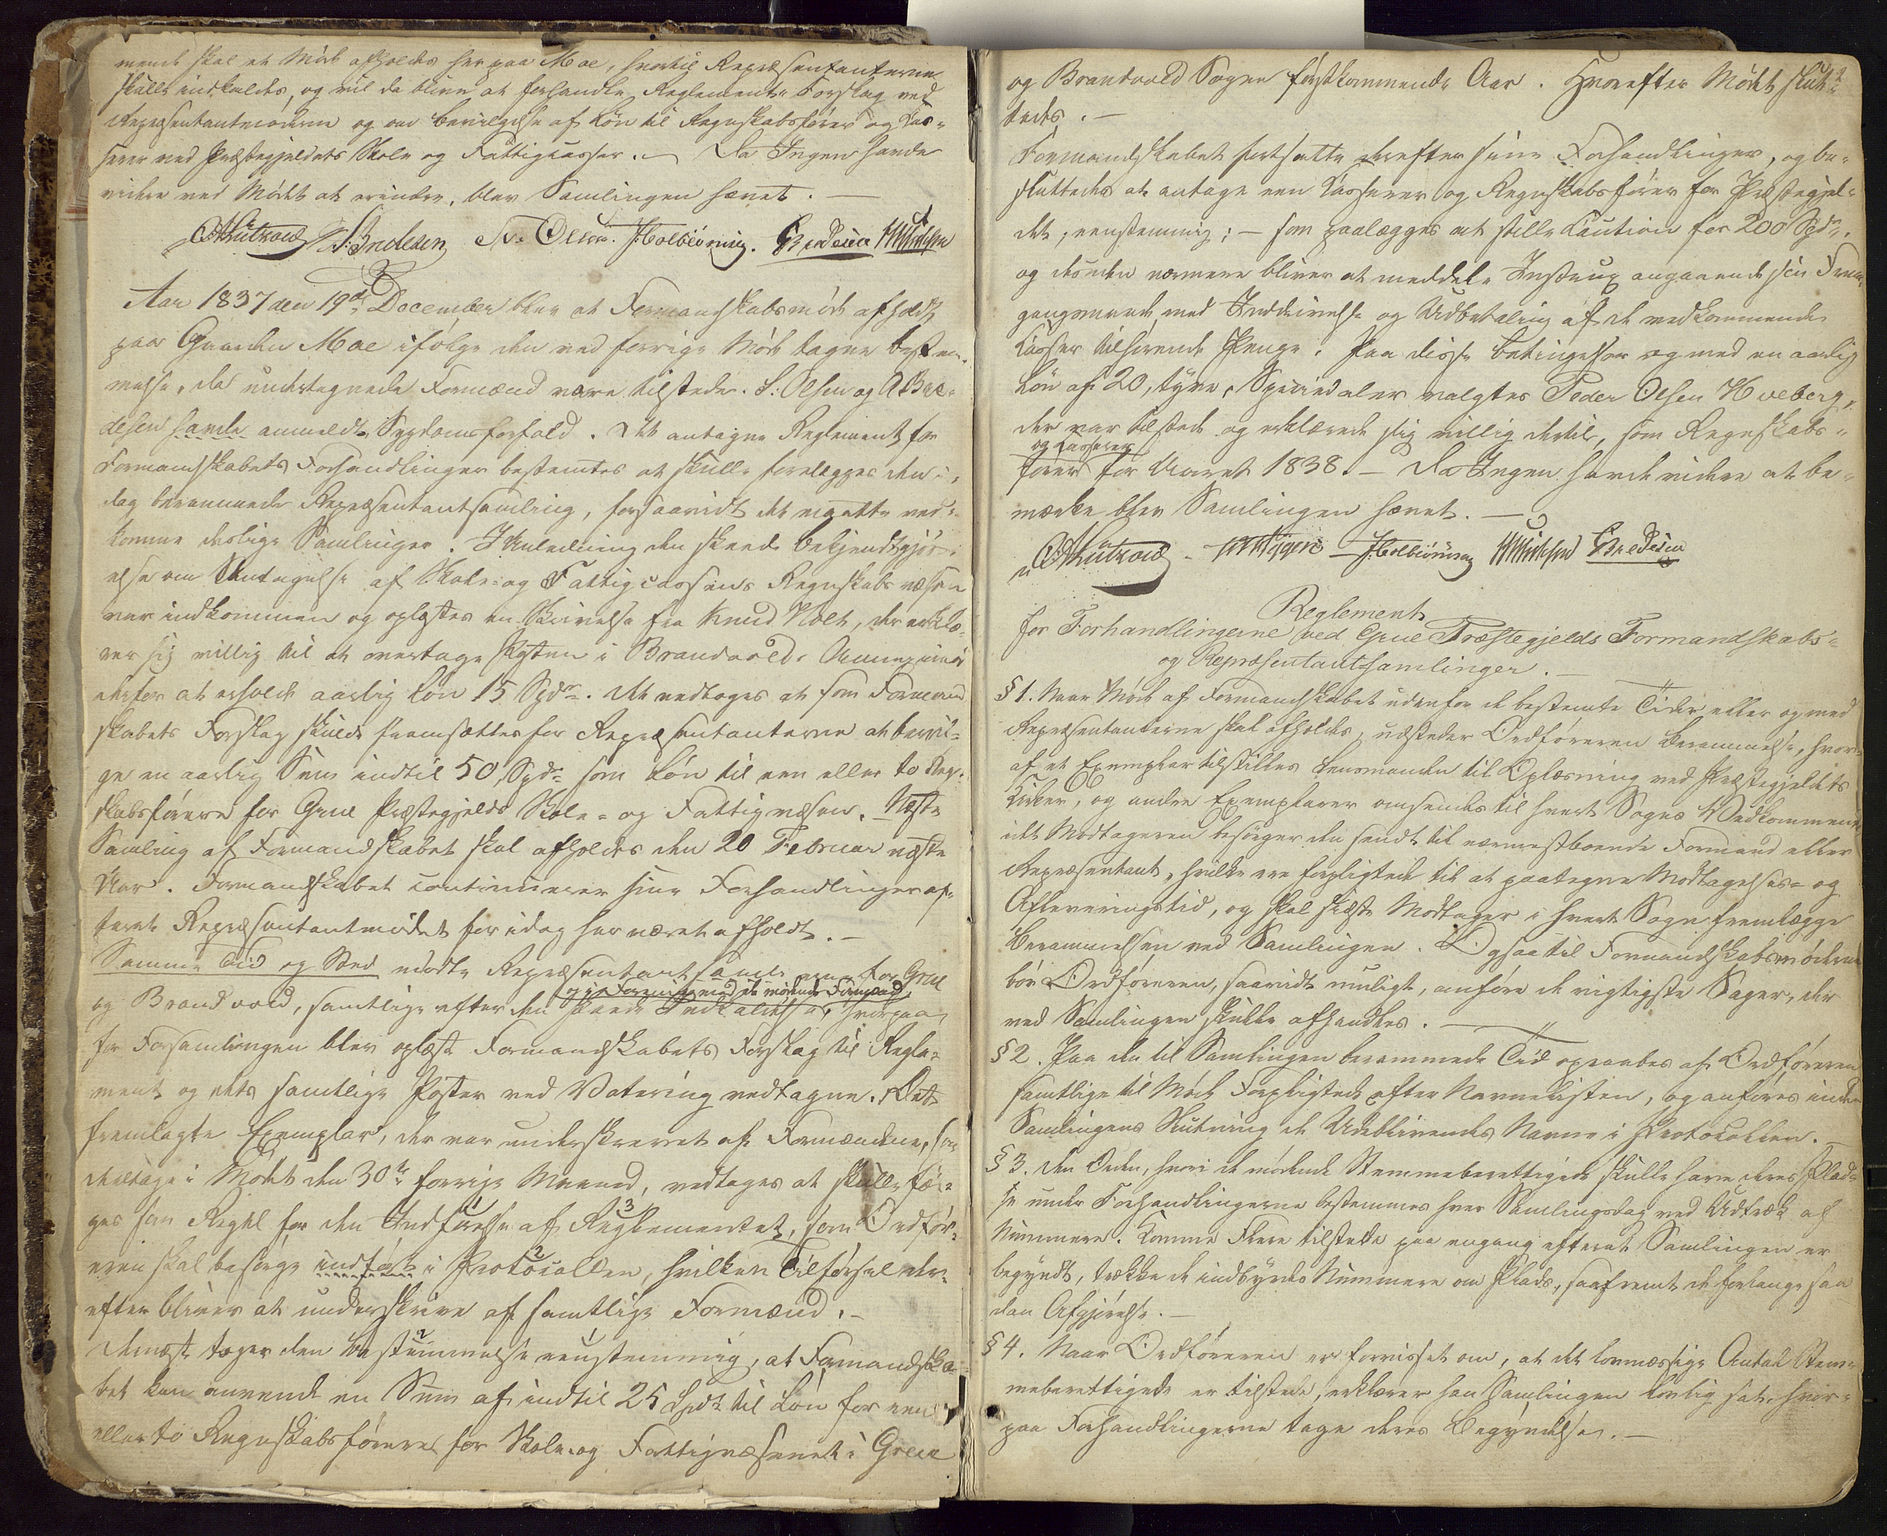 mende skal et Møde afholdes her paa Moe, hvortil Repræsentanterne
skulle indkaldes, og vil da blive at forhandle Reglements Forslag ved
Repræsentantmøderne og om bevilgelse af Løn til Regnskabsfører og Cas-
serer ved Præstegjeldets Skole og Fattigcasser. — Da Ingen havde
videre ved Mødet at erindre, blev Samlingen hævet. —
S. Olsen. J. Holbiørnsen. G Bredesen
Aar 1837 den 19de December blev et Formandskabsmøde afholdt
paa Gaarden Moe ifølge den ved forrige Møde tagne bestem-
melse, da undertegnede Formænd være tilstede. S: Olsen og A Bre-
desen havde anmeldt Sygdomsforfald. Det antagne Reglement for
Formandskabets Forhandlinger bestemtes at skulle forelægges den i-
dag berammede Repræsentantsamling, forsaavidt det maatte ved-
komme deslige Samlinger. I Anledning den skeede bekjendtgjør-
else om Antagelse af Skole- og Fattigcassens Regnskabsvæsen
var indkommen og oplæstes en Skrivelse fra Knud Noer, der erklæ-
rer sig villig til at overtage Posten i Brandvolds Annex imod
derfor at erholde aarlig Løn 15 Spdr. Det vedtoges at som Formand
skabets Forslag skulde fremsættes for Repræsentanterne at bevil-
ge en aarlig Sum indtil 50 Spdr som Løn til een eller to Regn-
skabsførere for Grue Præstegjelds Skole- og Fattigvæsen. Næste
Samling af Formandskabet skal afholdes den 20 Februar næste
Aar. Formandskabet continuerer sine Forhandlinger ef-
terat Repræsentantmødet for idag har været afholdt. —
Samme Tid og Sted mødte Repræsentant for Grue
og de Formænd
og Brandvold, samtlige efter den skeede Indkaldelse, hvorpaa
for Forsamlingen blev oplæst Formandskabets Forslag til Regle-
ment og dets samtlige Poster ved Votering vedtagne. Det
fremlagte Exemplar, der var underskrevet af Formændene, som
deeltoge i Mødet den 30te forrige Maaned, vedtoges at skulle føl-
ges som Regel for den Indførelse af Reglementet, som Ordfør-
eren skal besørge indført i Protocollen, hvilken Tilførsel der-
efter bliver at underskrive af samtlige Formænd. —
Dernæst toges den bestemmelse eenstemmig, at Formandska-
bet kan anvende en Sum af indtil 25 Spdr til Løn for een
eller to Regnskabsførere for Skole- og Fattigvæsenet i Grue
og Brandvold Sogne førstkommende Aar. Hvorefter Mødet slut-
tedes. —
Formandskabet fortsatte derefter sine Forhandlinger, og be-
sluttedes at antage een Casserer og Regnskabsfører for Præstegjel-
det, eenstemmig; — som paalægges at stille Caution for 200 Spdr.
og desuden nærmere bliver at meddele Instrux angaaende sin Frem-
gangsmaade med Inddrivelse og Udbetaling af de vedkommende
Casser tilhørende Penge. Paa disse betingelser og med en aarlig
Løn af 20, tyve, Speciedaler valgtes Peder Olsen Hveberg,
der var tilstede og erklærede sig villig dertil, som Regnskabs-
og Casserer
fører for Aaret 1838. — Da Ingen havde videre at be-
mærke blev Samlingen hævet. —
J. Holbiørnsen G Bredesen
Reglement
for Forhandlingerne ved Grue Præstegjelds Formandskabs-
og Repræsentantsamlinger. —
§ 1. Naar Møde af Formandskabet udenfor de bestemte Tider eller og med
Repræsentanterne skal afholdes, udsteder Ordføreren Berammelse, hvor-
af et Exemplar tilstilles Lensmanden til Oplæsning ved Præstegjeldets
Kirker, og andre Exemplarer omsendes til hvert Sogns Vedkommende
idet Modtageren besørger den sendt til nærmestboende Formand eller
Repræsentant, hvilke ere forpligtede til at paategne Modtagelses- og
Afleveringstid, og skal sidste Modtager i hvert Sogn fremlægge
Berammelsen ved Samlingen. Ogsaa til Formandskabsmøderne
bør Ordføreren, saavidt muligt, anføre de vigtigste Sager, der
ved Samlingen skulle afhandles. —
§ 2. Paa den til Samlingen berammede Tid opraabes af Ordføreren
samtlige til Møde Forpligtede efter Navnelisten, og anføres inden
Samlingens Slutning de Udeblivendes Navne i Protocollen. —
§ 3. Den Orden, hvori de mødende Stemmeberettigede skulle have deres Plad-
se under Forhandlingerne bestemmes hver Samlingsdag ved Udtræk af
Nummere. Komme Flere tilstede paa engang efterat Samlingen er
begyndt, trække de indbyrdes Nummere om Plads, saafremt de forlange saa
dan Afgjørelse. —
§ 4. Naar Ordføreren er forvisset om, at det lovmæssige Antal Stem-
meberettigede er tilstede, erklærer han Samlingen lovlig sat, hvor-
paa Forhandlingerne tage deres Begyndelse. —